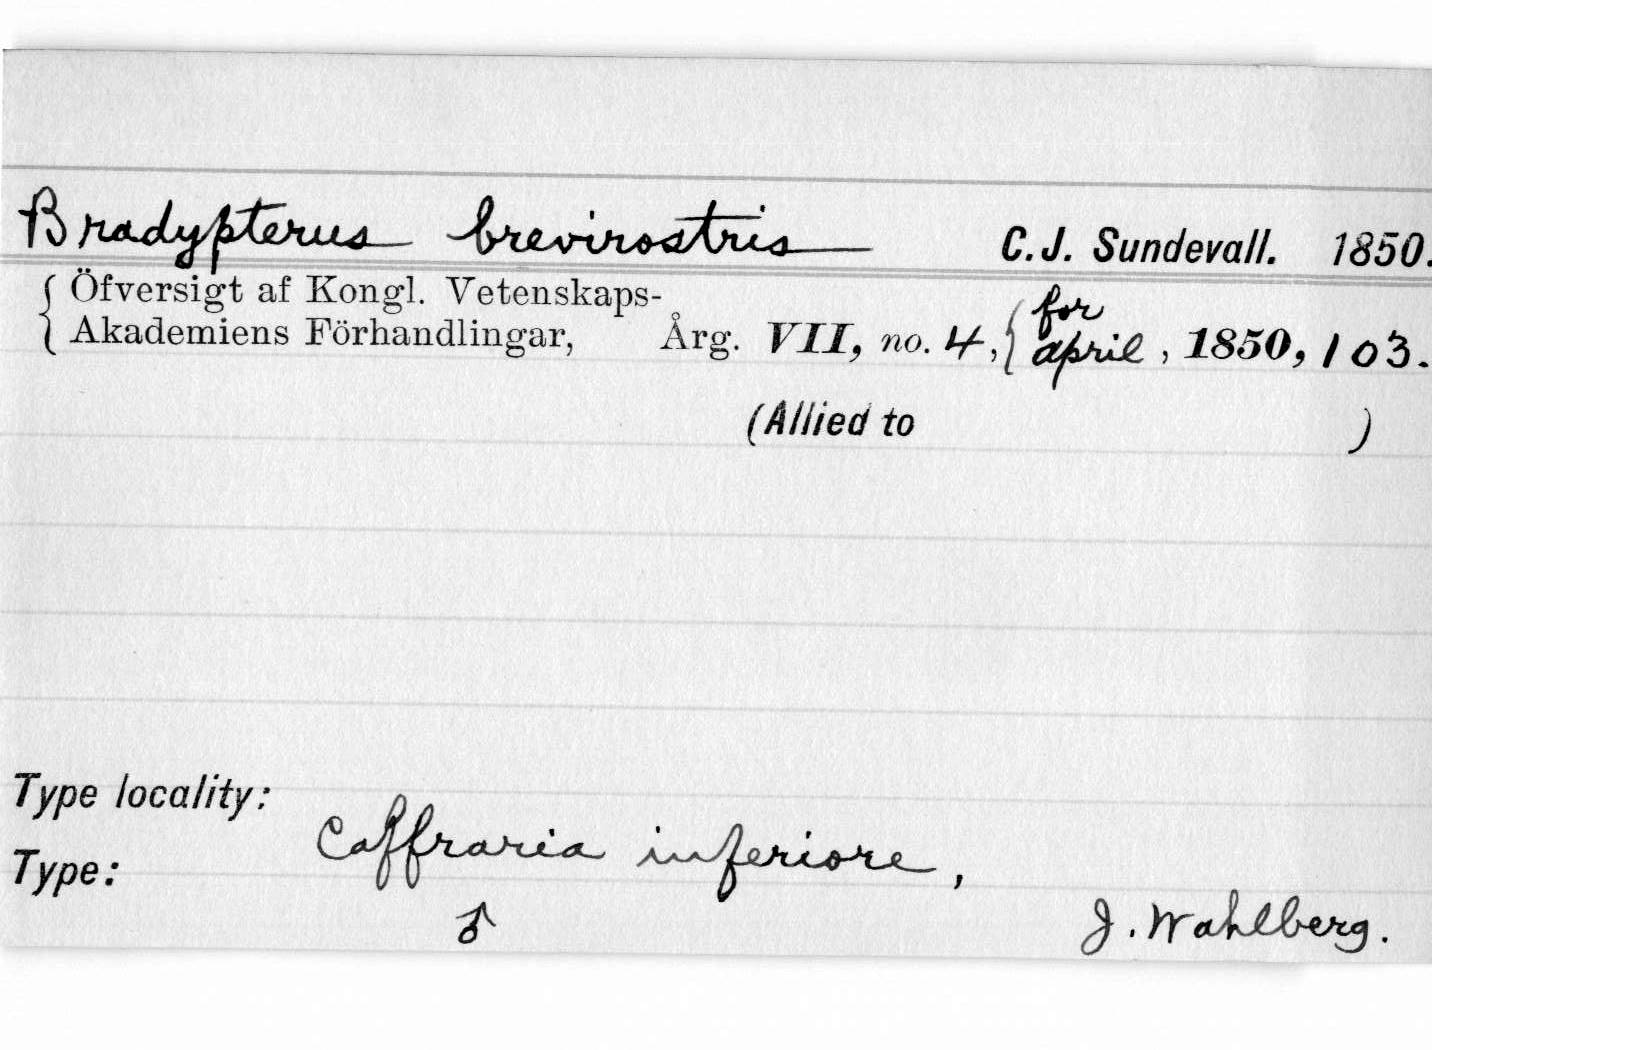 Bradypterus brevirostris C.J. Sundevall. 1850.
{ Öfversigt af Kongl. Vetenskaps-
Akademiens Förhandlingar, Årg. VII, no. 4, { for april, 1850, 103.
(Allied to )
Type locality:
Caffraria inferiore,
Type:
♂ J. Wahlberg.